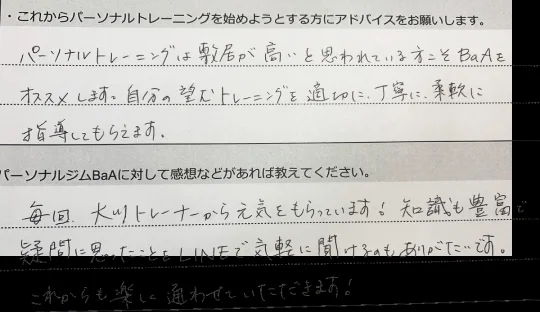 ・これからパーソナルトレーニングを始めようとする方にアドバイスをお願いします。
パーソナルトレーニングは敷居が高いと思われている方こそBaAを
オススメします。自分の望むトレーニングを適切に、丁寧に、柔軟に
指導してもらえます。
パーソナルジムBaAに対して感想などがあれば教えてください。
毎回、大川トレーナーから元気をもらっています！知識も豊富で
疑問に思ったこともLINEで気軽に聞けるのもありがたいです。
これからも楽しく通わせていただきます！